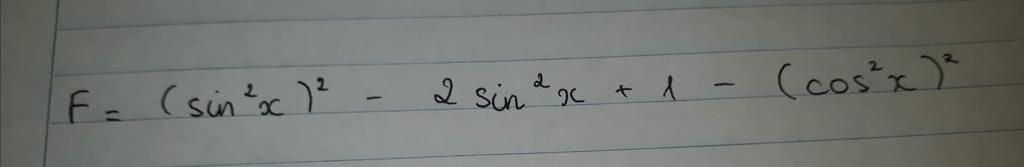 F = (sin²x)² - 2 sin²x + 1 - (cos²x)²